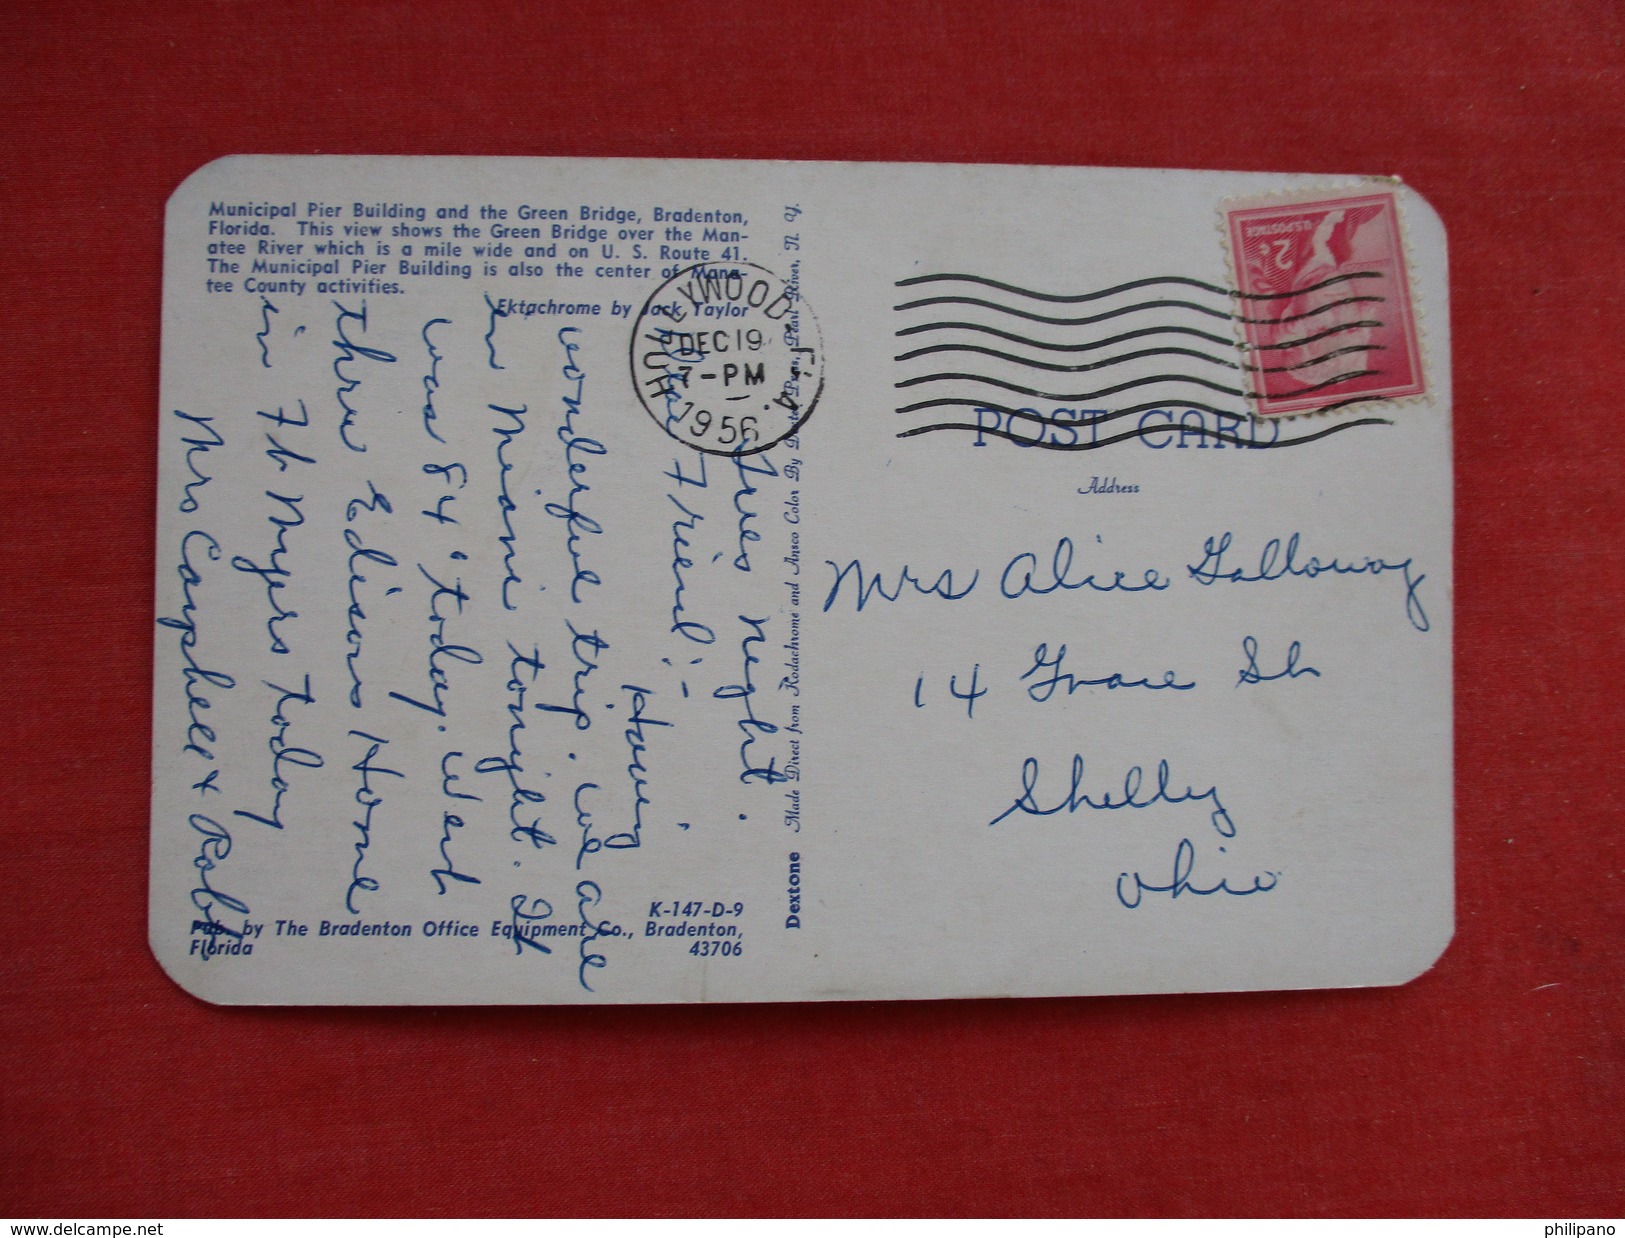 Municipal Pier Building and the Green Bridge, Bradenton,
Florida. This view shows the Green Bridge over the Man-
atee River which is a mile wide and on U. S. Route 41.
The Municipal Pier Building is also the center of Mana-
tee County activities.
Ektachrome by Jack Taylor
Tues night.
Dear Friend:-
Having
wonderful trip. We are
in Miami tonight. It
was 84° today. Went
thru Edisons Home
in Ft Myers today
Mrs Campbell + Roby
K-147-D-9
Pub. by The Bradenton Office Equipment Co., Bradenton,
Florida 43706
Dextone Made Direct from Kodachrome and Ansco Color By Dexter Press, Pearl River, N. Y.
HOLLYWOOD FLA.
DEC 19
7-PM
1956
2¢
U.S. POSTAGE
POST CARD
Address
Mrs Alice Galloway
14 Grace St
Shelby
Ohio
www.delcampe.net
philipano